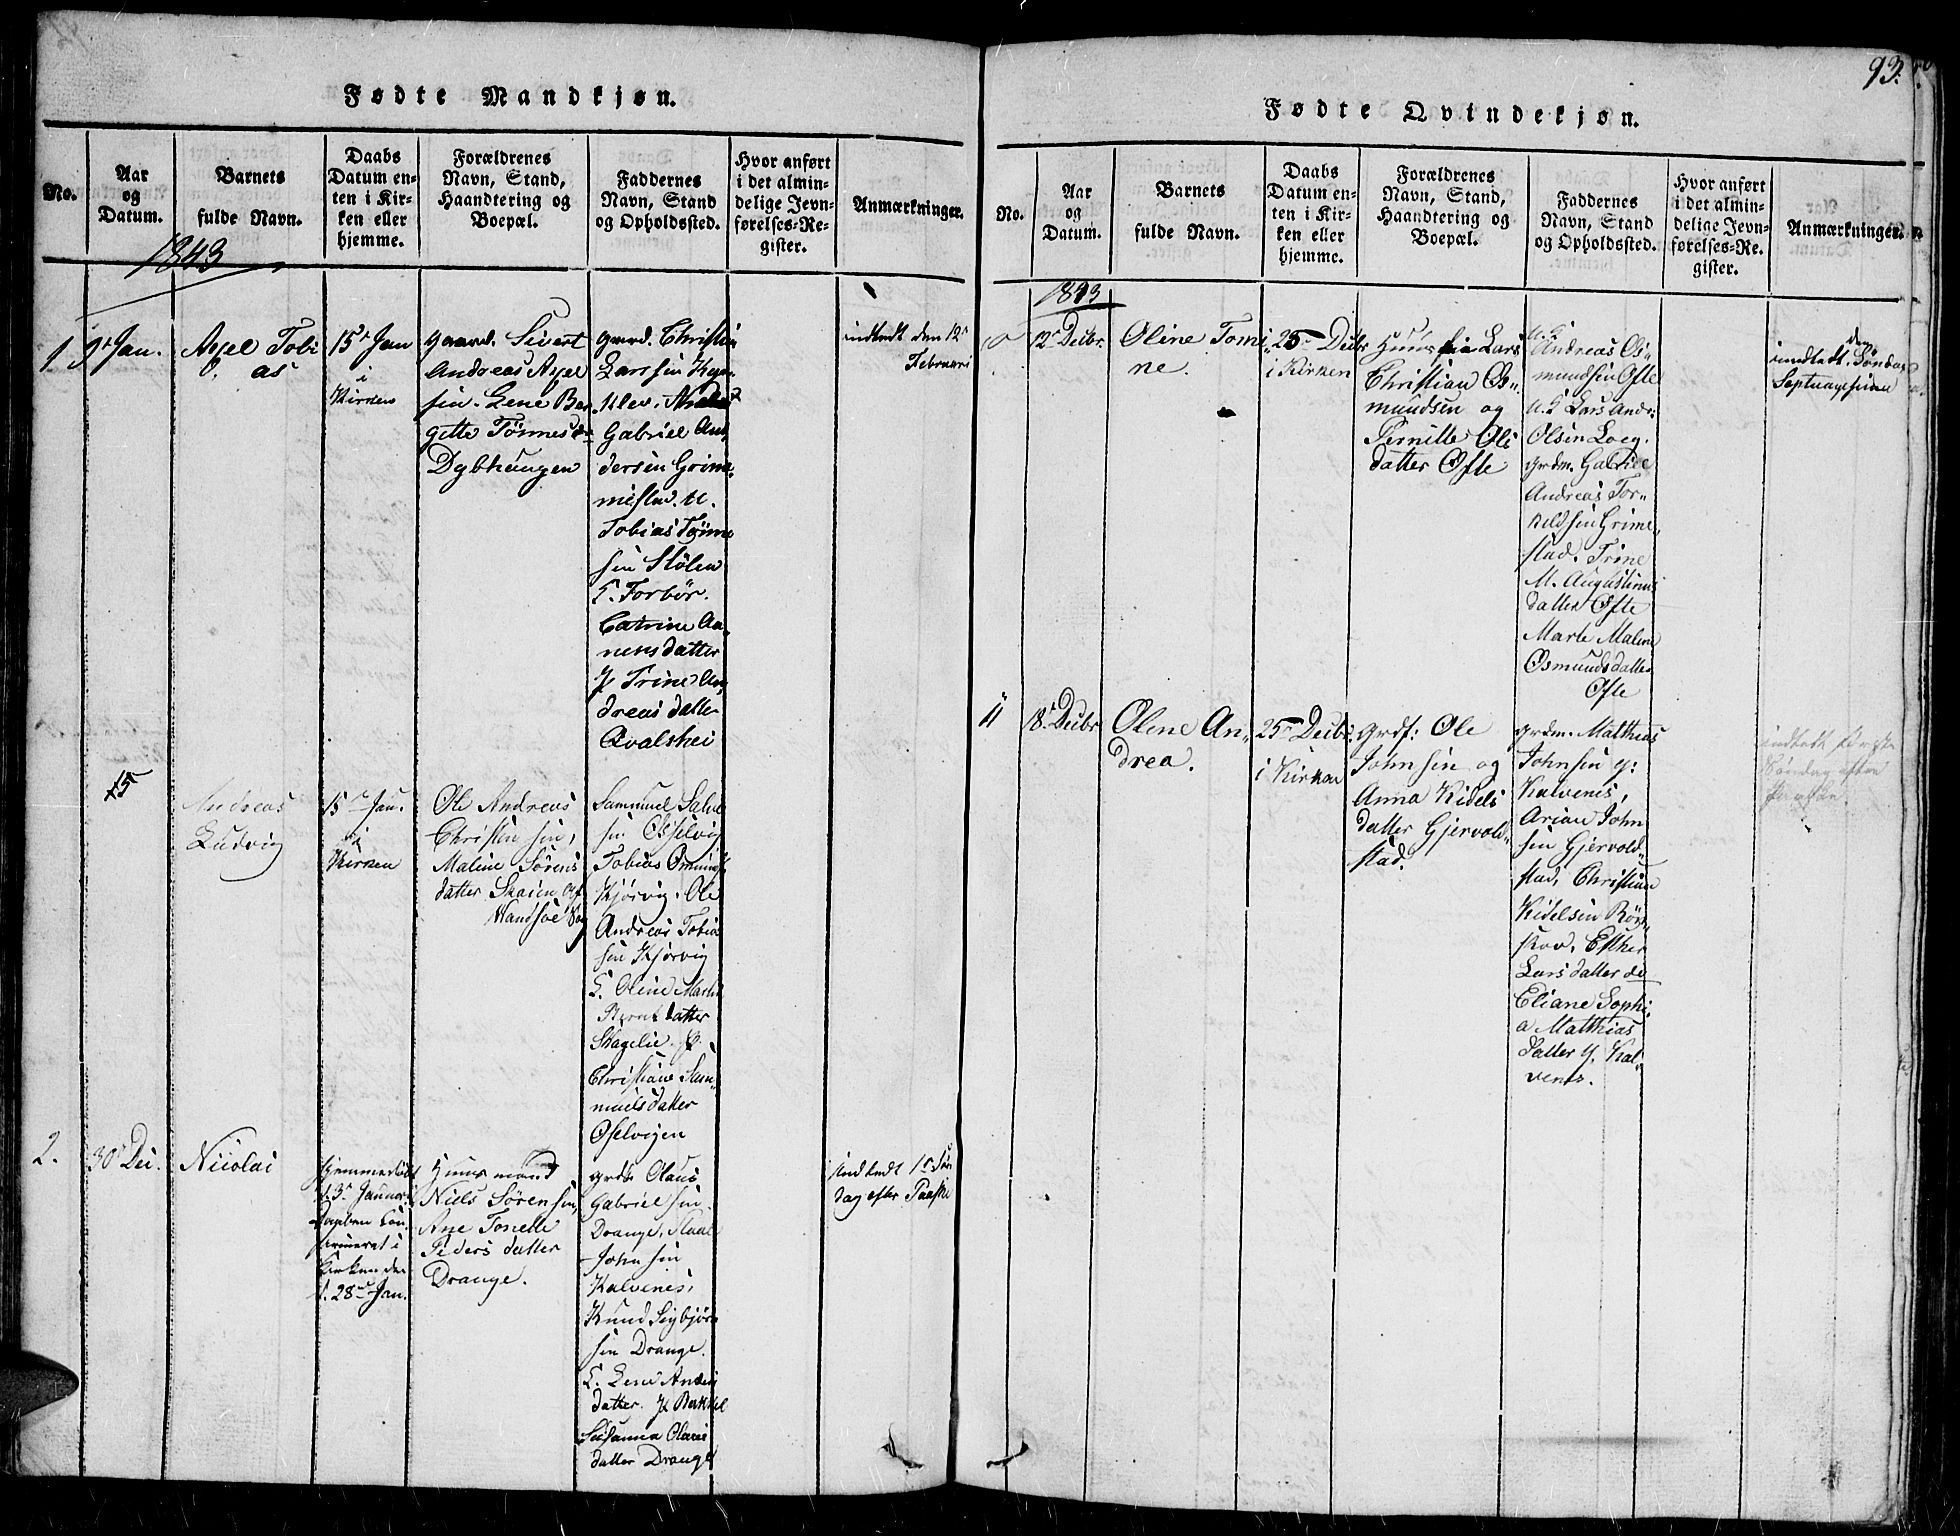 93.
Fødte Mandkjøn.
No.
Aar
og
Datum.
Barnets
fulde Navn.
Daabs
Datum en-
ten i Kir-
ken eller
hjemme.
Forældrenes
Navn, Stand,
Haandtering og
Boepæl.
Faddernes
Navn, Stand
og Opholdssted.
Hvor anført
i det almin-
delige Jevn-
førelses-Re-
gister.
Anmærkninger.
1843
1.
9r Jan.
Axel Tobi
as
15r Jan
i
Kirken
gaard. Sivert
Andreas Axel
sen. Lene Ber
gitte Tønnesdr
Dybhaugen
Christia
Larssen
Gabriel An
dersen Grim
mestad. U.
Tobias Tønne
sen Stølen
Catrine Aa
nensdatter
Trine An
dreas datter
Qvalshei
indledt den 12r
Februari
15
Andreas
Ludvig
15r Jan.
i
Kirken
Ole Andreas
Christensen,
Malene Sørens
datter
Samuel Salve
sen Oselvig
Tobias
Kjørvig. Ole
Andreas Tobia
sen Kjørvig
Oline Martin
datter
Skagelie.
Christiane Sam
muelsdatter
Oselvigen
2.
30r Dec.
Nicolai
hjemmedøbt
d. 3r Januar
i
Kirken den
d. 28r Jan.
Huusmand
Niels Sørensen,
Ane Tonette
Peders datter
Drange.
Olaus
Gabrielsen
Drange,
Johnsen
Kalvenes,
Knud Sigbjørn
sen Drange.
Lene Anders
datter.
Susanna Olaus
datter Drange
indledt 1r Søn
dag efter Paaske
Fødte Qvindekjøn.
No.
Aar
og
Datum.
Barnets
fulde Navn.
Daabs
Datum en-
ten i Kir-
ken eller
hjemme.
Forældrenes
Navn, Stand,
Haandtering og
Boepæl.
Faddernes
Navn, Stand
og Opholdssted.
Hvor anført
i det almin-
delige Jevn-
førelses-Re-
gister.
Anmærkninger.
1843
12r Decbr
Oline Tomi
ne.
25r Decbr
i Kirken
Lars
Christian Os-
mundsen og
Pernille Ols
datter Øfte
Andreas Os-
mundsen Øfte
Lars Andr:
Olsen Loeg.
grdm. Gabriel
Andreas Tor-
kildsen Grime-
stad. Trine
M. Augustinus
datter Øfte
Marte Malene
Osmundsdatter
Øfte
indledt den Søndag
Septuagesima
11
18r Decbr
Olene An-
drea.
25r Decbr.
i Kirken
grdf: Ole
Johnsen og
Anna Kidels
datter Gjervold-
stad.
grdm. Mathias
Johnsen y:
Kalvenes,
Arian John
sen Gjervold-
stad, Christian
Kidelsen Røy-
skov, Esther
Larsdatter de
Eliane Sophi-
a Matthias
datter y. Kal-
venes.
indledt første
Søndag efter
Paaske.